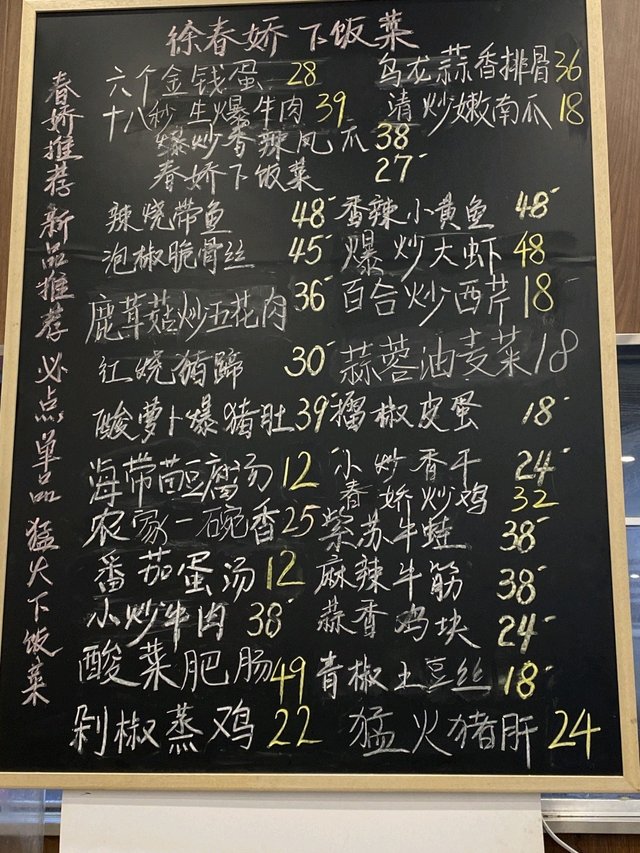 徐春娇下饭菜
春娇推荐 新品推荐 必点单品 猛火下饭菜
六个金钱蛋 28 乌龙蒜香排骨 36
十八秒生爆牛肉 39 清炒嫩南瓜 18
爆炒香辣凤爪 38
春娇下饭菜 27
辣烧带鱼 48 香辣小黄鱼 48
泡椒脆骨丝 45 爆炒大虾 48
鹿茸菇炒五花肉 36 百合炒西芹 18
红烧猪蹄 30 蒜蓉油麦菜 18
酸萝卜爆猪肚 39 擂椒皮蛋 18
海带苗豆腐汤 12 小炒香干 24
春娇炒鸡 32
农家一碗香 25 紫苏牛蛙 38
番茄蛋汤 12 麻辣牛筋 38
小炒牛肉 38 蒜香鸡块 24
酸菜肥肠 49 青椒土豆丝 18
剁椒蒸鸡 22 猛火猪肝 24